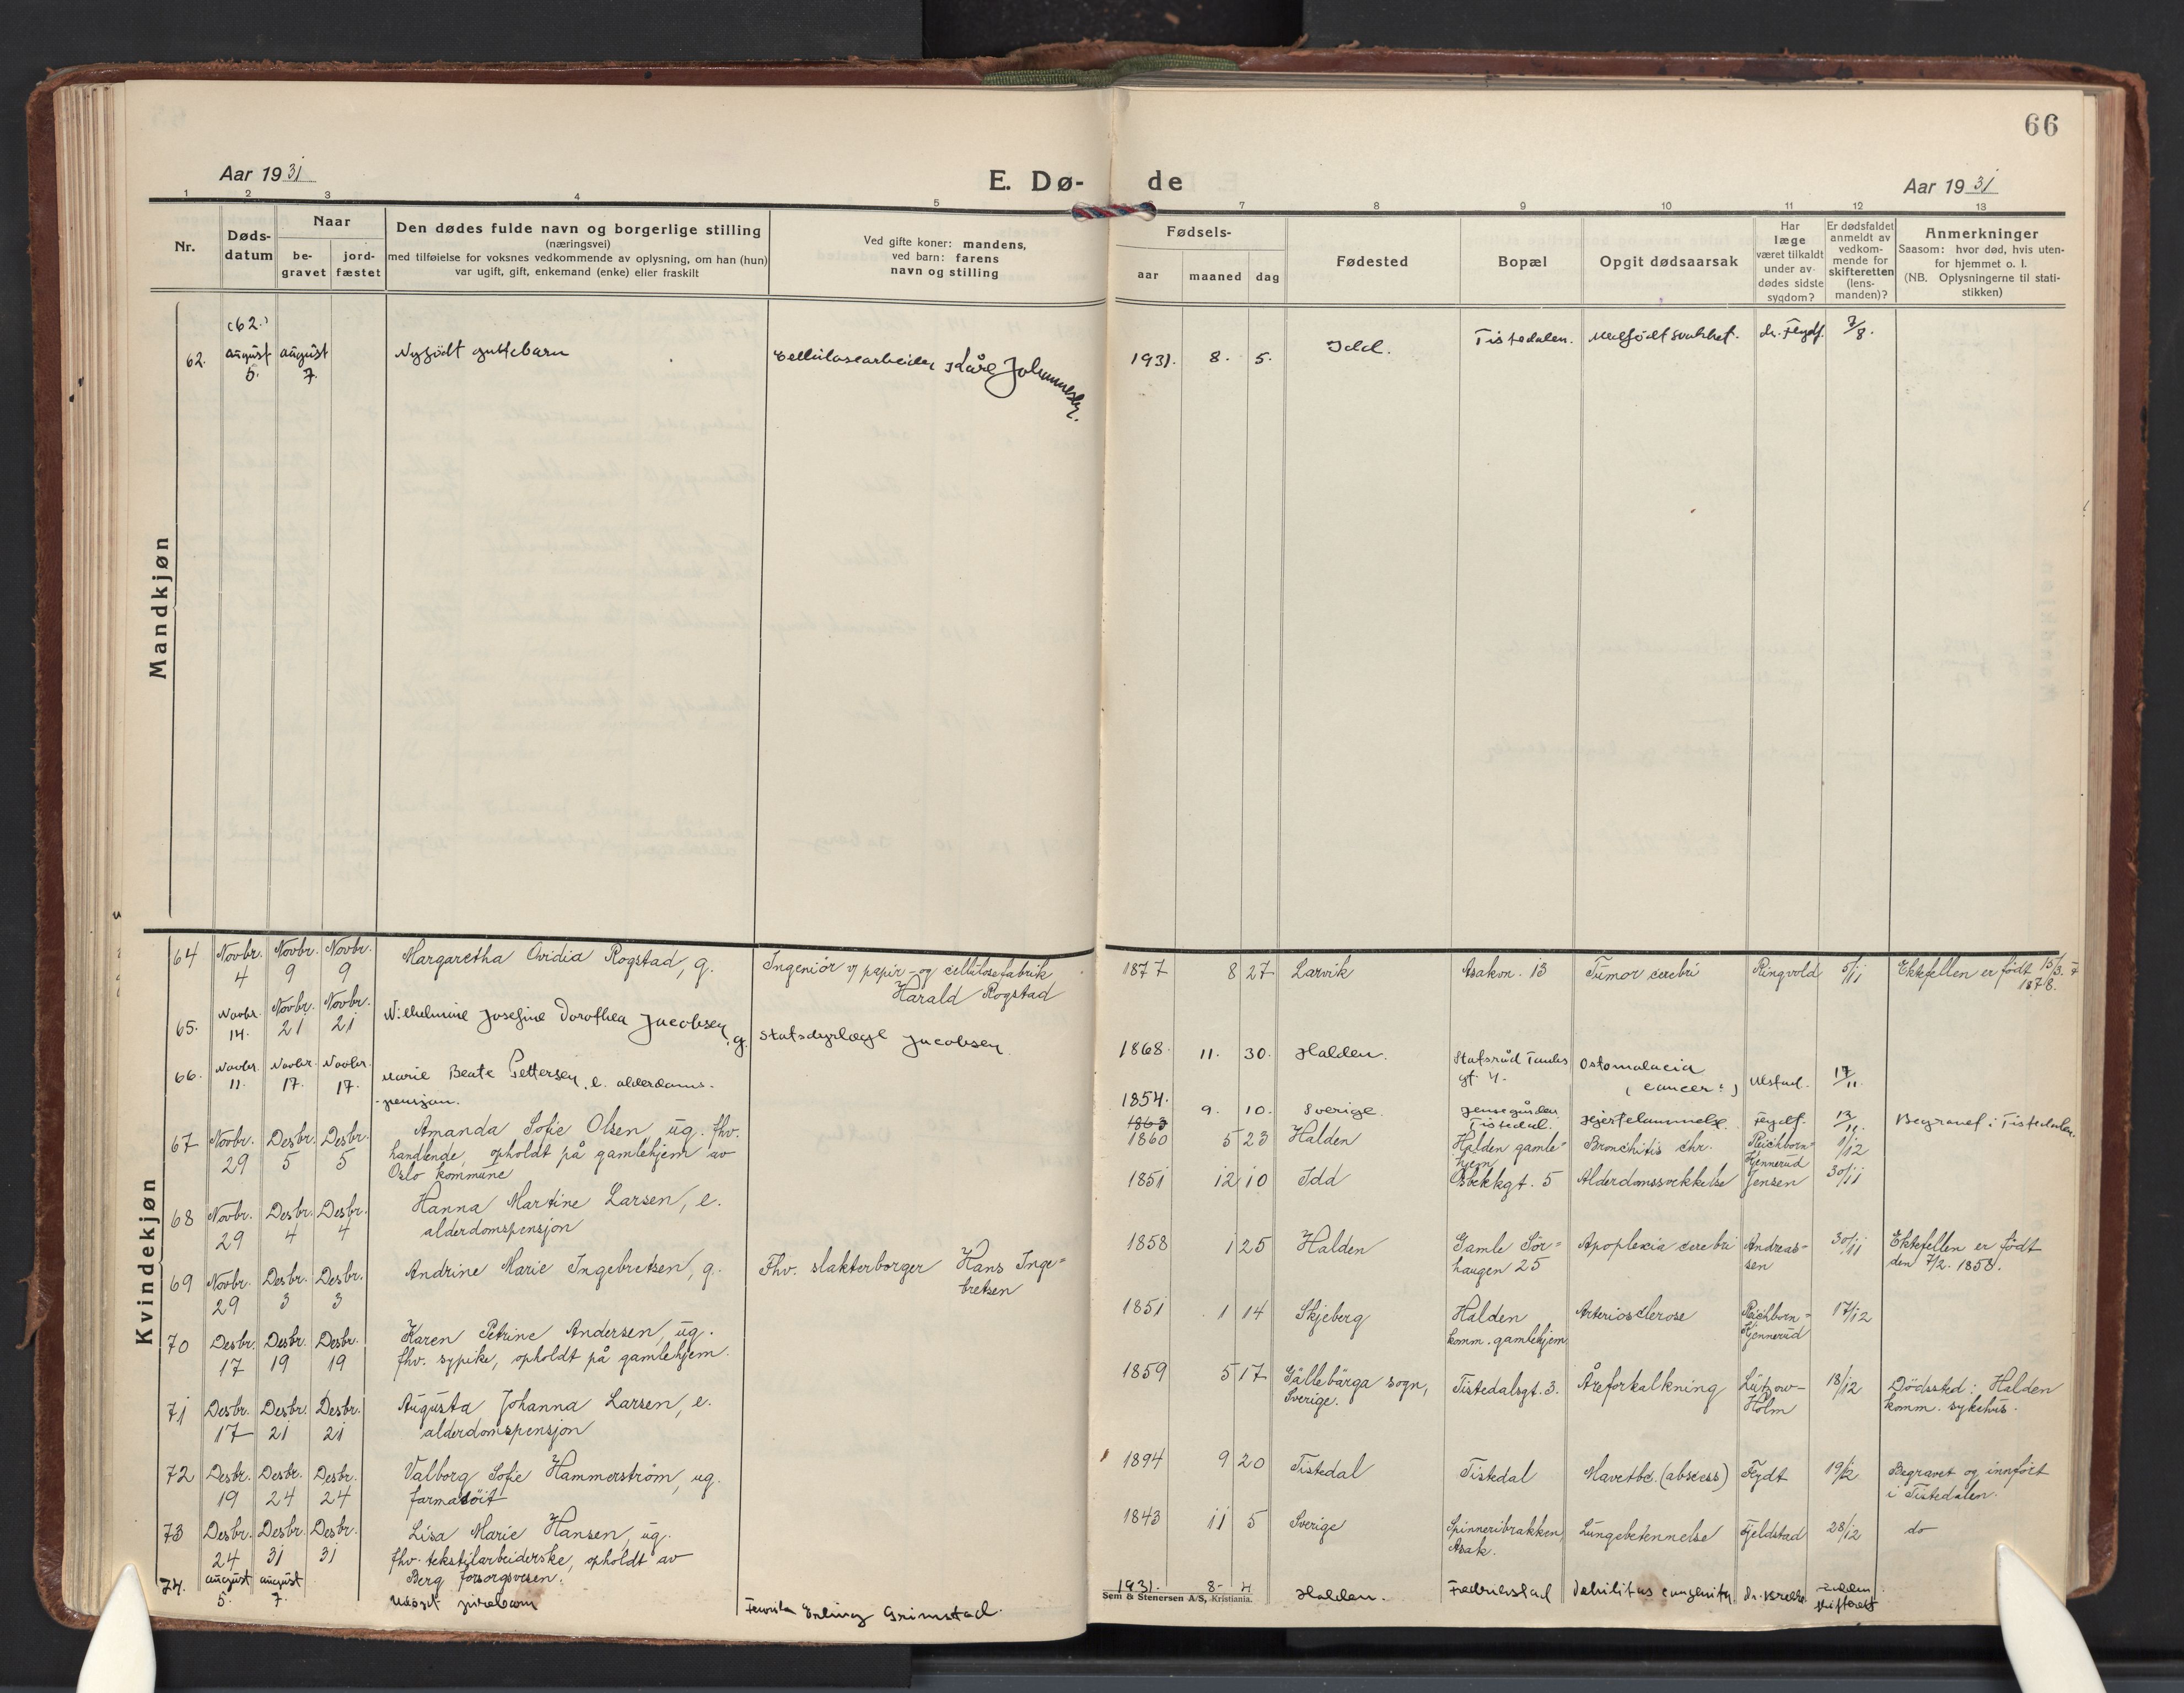 66
Aar 1931
E. Dø- de
Aar 1931
1 2 3 4 5 7 8 9 10 11 12 13
Nr.
Døds-
datum
Naar
be-
gravet
jord-
fæstet
Den dødes fulde navn og borgerlige stilling
(næringsvei)
med tilføielse for voksnes vedkommende av oplysning, om han (hun)
var ugift, gift, enkemand (enke) eller fraskilt
Ved gifte koner: mandens,
ved barn: farens
navn og stilling
Fødsels-
aar maaned dag
Fødested
Bopæl
Opgit dødsaarsak
Har
læge
været tilkaldt
under av-
dødes sidste
sygdom?
Er dødsfaldet
anmeldt av
vedkom-
mende for
skifteretten
(lens-
manden)?
Anmerkninger
Saasom: hvor død, hvis uten-
for hjemmet o. l.
(NB. Oplysningerne til stati-
stikken)
Mandkjøn
(62.)
62. august august Nyfødt guttebarn Cellulosearbeider Kåre Johannesen. 1931. 8. 5. Idd. Tistedalen. Medfødt svakhet. dr. Frydt. 7/8.
5. 7.
Kvindekjøn
64 Novbr. Novbr. Novbr. Margaretha Ovidia Rogstad, g. Ingeniör v/ papir- og cellulosefabrik 1877 8 27 Larvik Asakvn. 13 Tumor cerebri Ringvold 5/11 Ektefellen er født 15/3
4 9 9 Harald Rogstad 1878.
65. Novbr. Novbr. Novbr. Wilhelmine Josefine Dorothea Jacobsen, g. Statsdyrlæge Jacobsen 1868. 11. 30. Halden. Statsråd Tanks Ostomalacia Ulstad. 17/11
14. 21 21 gt 4. (cancer?)
66. Novbr. Novbr. Novbr. Marie Beate Pettersen, e. alderdoms- 1854. 9. 10. Sverige. Tistedal. Hjertelammelse. Frydt. 13/11. Begravet i Tistedalen.
11. 17. 17. -pensjon. 1863
67 Novbr. Desbr. Desbr. Amanda Sofie Olsen, ug. fhv. 1860 5 23 Halden Halden gamle= Bronchitis chr. Reichborn= 1/12
29 5 5 handlende, opholdt på gamlehjem av hjem Kjennerud
Oslo kommune
68 Novbr. Desbr. Desbr. Hanna Martine Larsen, e. 1851 12 10 Idd Osbekkgt. 5 Alderdomssvekkelse Jensen 30/11
29 4 4 alderdomspensjon
69 Novbr. Desbr. Desbr. Andrine Marie Ingebretsen, g. Fhv. slakterborger Hans Inge= 1858 1 25 Halden Gamle Sör= Apoplexia cerebri Andreas= 30/11 Ektefellen er födt
29 3 3 bretsen haugen 25 sen den 7/2. 1858.
70 Desbr. Desbr. Desbr. Karen Petrine Andersen, ug. 1851 1 14 Skjeberg Halden Arteriosclerose Reichborn= 17/12
17 19 19 fhv. sypike, opholdt på gamlehjem. komm. gamlehjem Kjennerud
71 Desbr. Desbr. Desbr. Augusta Johanna Larsen, e. 1859 5 17 Gällebärga sogn, Tistedalsgt. 3. Åreforkalkning Lützow- 18/12 Dödssted: Halden
17 21 21 alderdomspensjon Sverige. Holm komm. sykehus.
72 Desbr. Desbr. Desbr. Valborg Sofie Hammerström, ug. 1894 9 20 Tistedal Tistedal Mavetbc. (abscess) Frydt 19/12 Begravet og innfört
19 24 24 farmasöit i Tistedalen.
73 Desbr. Desbr. Desbr. Lisa Marie Hansen, ug. 1843 11 5 Sverige Spinneribrakken, Lungebetennelse Fjeldstad 28/12 do
24 31 31 fhv. tekstilarbeiderske, opholdt av Asak.
Berg forsorgsvesen.
74. august august pikebarn Erling Grimstad. 1931. 8- 4 Halden. Fredrikstad Debilitas congenita. dr. skifterett
5. 7.
Sem & Stenersen A/S, Kristiania.